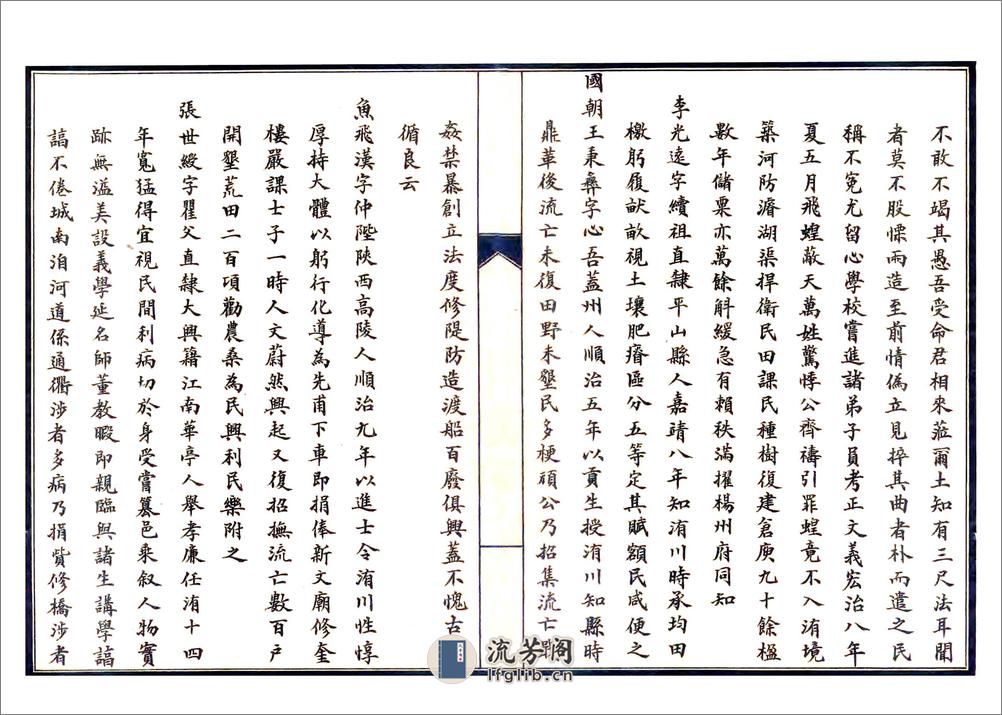 不敢不竭其愚吾受命君相來蒞爾土知有三尺法耳聞
者莫不股慄兩造至前情偽立見捽其曲者朴而遣之民
稱不冤尤留心學校嘗進諸弟子員考正文義宏治八年
夏五月飛蝗蔽天萬姓驚悸公齊禱引罪蝗竟不入洧境
築河防濬湖渠捍衛民田課民種樹復建倉庾九十餘楹
數年儲粟亦萬餘斛緩急有賴秩滿擢楊州府同知
李光遠字續祖直隸平山縣人嘉靖八年知洧川時承均田
檄躬履畎畝視土壤肥瘠區分五等定其賦額民咸便之
國朝王秉彝字心吾蓋州人順治五年以貢生授洧川知縣時
鼎革後流亡未復田野未墾民多梗頑公乃招集流亡
姦禁暴創立法度修隄防造渡船百廢俱興蓋不愧古
循良云
魚飛漢字仲陞陝西高陵人順治九年以進士令洧川性惇
厚持大體以躬行化導為先甫下車即捐俸新文廟修奎
樓嚴課士子一時人文蔚然興起又復招撫流亡數百戶
開墾荒田二百項勸農桑為民興利民樂附之
張世綬字瞿父直隸大興籍江南華亭人舉孝廉任洧十四
年寬猛得宜視民間利病切於身受嘗纂邑乘叙人物實
跡無溢美設義學延名師董教暇即親臨與諸生講學諄
諄不倦城南洎河道係通衢涉者多病乃捐貲修橋涉者
流芳阁
lfglib.cn